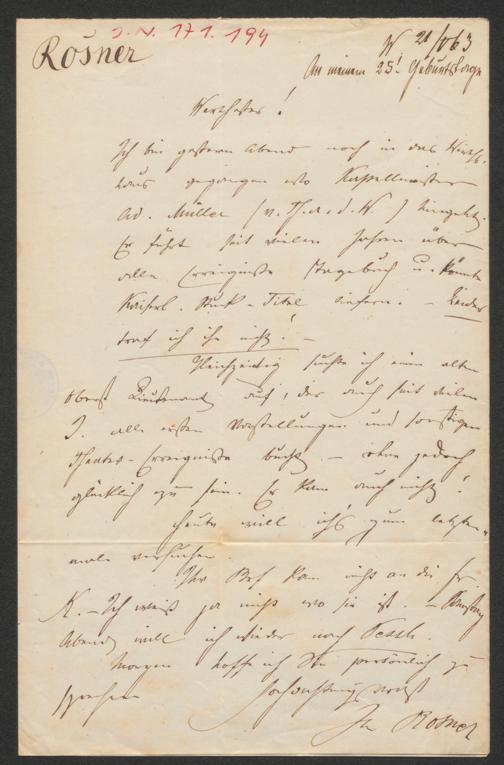 I. N. 171.194
Rosner
W 21/63
An meinem 25! Geburtstage
Werthester!
Ich bin gestern Abend noch in das Wirths-
haus gegangen wo Kapellmeister
Ad. Müller (v. Th. a. d. W.) hingeht.
Er führt seit vielen Jahren über
alle Ereignisse Tagebuch u. könnte
Kaiserl. Titel liefern. – Leider
traf ich ihn nicht! –
Gleichzeitig suchte ich einen alten
Oberst Lieutenant auf, der auch seit vielen
J. alle ersten Vorstellungen und sonstigen
Theater-Ereignisse bucht – ohne jedoch
glücklich zu sein. Er kam auch nicht!
Heute will ich's zum letzten-
male versuchen.
Ihr Brief kam nicht an die Fr.
K. – Ich weiß ja nicht wo sie ist. –
Abend will ich wieder nach Pesth.
Morgen hoffe ich Sie persönlich zu
sprechen
Hochachtungsvollst
Ihr Rosner